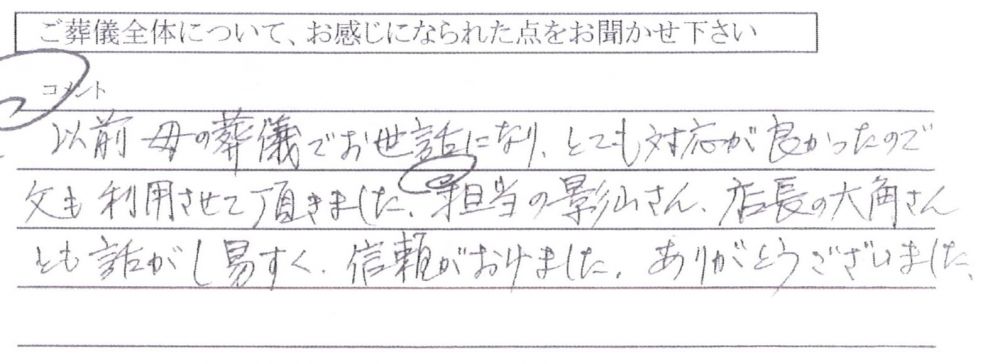 ご葬儀全体について、お感じになられた点をお聞かせ下さい
コメント
以前 母の葬儀でお世話になり、とても対応が良かったので
父も利用させて頂きました、担当の影山さん、店長の大角さん
とも話がし易すく、信頼がおけました。ありがとうございました、